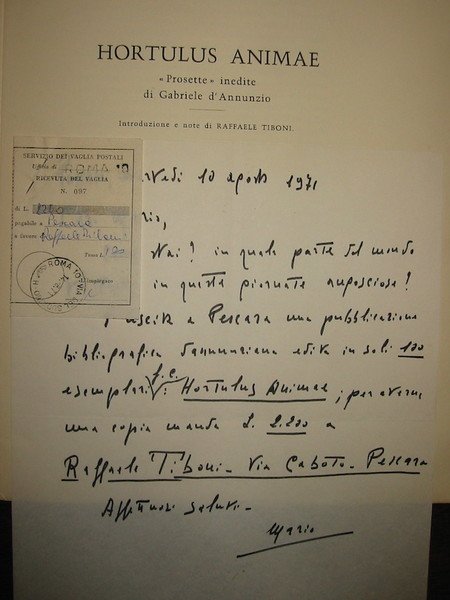 HORTULUS ANIMAE
« Prosette » inedite
di Gabriele d'Annunzio
Introduzione e note di RAFFAELE TIBONI.
SERVIZIO DEI VAGLIA POSTALI
Ufficio di ROMA
RICEVUTA DEL VAGLIA
N. 097
di L.
pagabile a Pescara
a favore Raffaele Tiboni
Tassa L. 120
L'impiegato
ROMA
10 agosto 1971
Vai? in quale parte del mondo
in queste giornate
È uscita a Pescara una pubblicazione
bibliografica dannunziana edita in soli 100
esemplari f.c.: Hortulus Animae; per averne
una copia manda L. 2.200 a
Raffaele Tiboni - Via Caboto - Pescara
Affettuosi saluti -
Mario